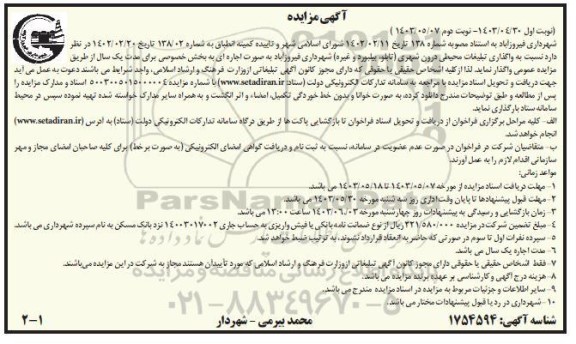 آگهی مزایده
(نوبت اول ۱۴۰۳/۰۴/۳۰ - نوبت دوم ۱۴۰۳/۰۵/۰۷)
شهرداری فیروزآباد به استناد مصوبه شماره ۱۳۸ تاریخ ۱۴۰۳/۰۲/۱۱ شورای اسلامی شهر و تاییده کمیته انطباق به شماره ۱۳۸/۰۲ تاریخ ۱۴۰۳/۰۲/۲۰ در نظر
دارد نسبت به واگذاری تبلیغات محیطی درون شهری (تابلو، بیلبورد و غیره) شهرداری فیروزآباد به صورت اجاره ای به بخش خصوصی برای مدت یک سال از طریق
مزایده عمومی واگذار نماید. لذا از کلیه اشخاص حقیقی یا حقوقی که دارای مجوز کانون آگهی تبلیغاتی ازوزارت فرهنگ و ارشاد اسلامی، واجد شرایط می باشند دعوت به عمل می آید
جهت دریافت و تحویل اسناد مزایده با مراجعه به سامانه تدارکات الکترونیکی دولت (ستاد: www.setadiran.ir) با شماره مزایده ۵۰۰۳۰۰۵۰۱۵۰۰۰۰۰۴ اسناد و مدارک مزایده را
پس از مطالعه و طبق توضیحات مندرج دانلود کرده، به صورت خوانا و بدون خط خوردگی تکمیل، امضاء و اثر انگشت و به همراه سایر مدارک خواسته شده تهیه نموده سپس در محیط
سامانه ستاد بارگذاری نماید.
الف - کلیه مراحل برگزاری فراخوان از دریافت و تحویل اسناد فراخوان تا بازگشایی پاکت ها از طریق درگاه سامانه تدارکات الکترونیکی دولت (ستاد) به ادرس (www.setadiran.ir)
انجام خواهد شد.
ب- متقاضیان شرکت در فراخوان در صورت عدم عضویت در سامانه، نسبت به ثبت نام و دریافت گواهی امضای الکترونیکی (به صورت برخط) برای کلیه صاحبان امضای مجاز و مهر
سازمانی اقدام لازم را به عمل آورند.
مواعد زمانی:
۱- مهلت دریافت اسناد مزایده از مورخه ۱۴۰۳/۰۵/۰۷ تا ۱۴۰۳/۰۵/۱۸ می باشد.
۲- مهلت قبول پیشنهادها تا پایان وقت اداری روز سه شنبه مورخه ۱۴۰۳/۰۵/۳۰ می باشد.
۳- زمان بازگشایی و رسیدگی به پیشنهادات روز چهارشنبه مورخه ۱۴۰۳/۰۶/۰۲ ساعت ۱۲:۰۰ می باشد.
۴- مبلغ تضمین شرکت در مزایده ۲۲۱/۵۸۰/۰۰۰ ریال از نوع ضمانت نامه بانکی یا فیش واریزی به حساب جاری ۱۴۰۰۳۰۱۷۰۰۲ نزد بانک مسکن به نام سپرده شهرداری می باشد.
۵- سپرده نفرات اول تا سوم در صورتی که حاضر به انعقاد قرارداد نشوند، به ترتیب ضبط خواهد شد.
۶- مدت اجاره یک سال می باشد.
۷- فقط اشخاص حقیقی یا حقوقی دارای مجوز کانون آگهی تبلیغاتی ازوزارت فرهنگ و ارشاد اسلامی که مورد تأییدان هستند مجاز به شرکت در این مزایده می‌باشند.
۸- هزینه درج آگهی و کارشناسی بر عهده برنده مزایده می باشد.
۹- سایر اطلاعات و جزئیات مربوط به مزایده در اسناد مزایده مندرج می باشد.
۱۰- شهرداری در رد یا قبول پیشنهادات مختار می باشد.
شناسه آگهی: ۱۷۵۴۵۹۴
محمد بیرمی - شهردار
۲-۱
ParsNamadData
۰۲۱-۸۸۳۴۹۶۷۰-۵